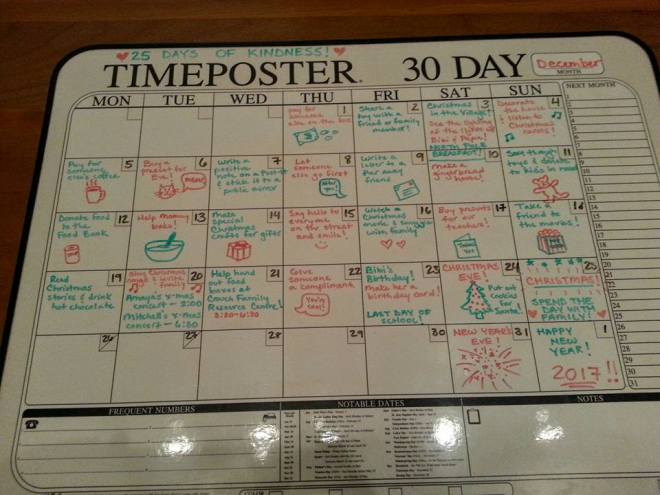 25 DAYS OF KINDNESS!
TIMEPOSTER 30 DAY
December
MONTH
MON TUE WED THU FRI SAT SUN
NEXT MONTH
1
pay for
someone
else on the bus
2
Share a
toy with a
friend or family
member!
3
Christmas
in the Village!
See the
of the lights w/
Bibi & Papa!
4
Decorate
the house
& listen to
Christmas
carols!
5
Pay for
someone
else's coffee
6
Buy a
present for
Eve!
meow!
7
Write a
positive
note on a Post-it
& stick it to a
public mirror
8
Let
someone
else go first
After
you!
9
Write a
letter to a
far away
friend
10
NORTH POLE
BREAKFAST!
Make a
gingerbread
house!
11
Sort through
toys & donate
to kids in need
12
Donate food
to the
Food Bank
13
Help mommy
bake!
14
Make
special
Christmas
crafts for gifts
15
Say hello to
everyone
on the street
and smile!
16
Watch a
Christmas
movie & snuggle
with family
17
Buy presents
for our
teachers!
Thank
you
18
Take a
friend to
the movies!
19
Read
Christmas
stories & drink
hot chocolate
20
Sing Christmas
songs & write
family!
Amaya's x-mas
concert - 2:00
Mitchell's x-mas
concert - 6:30
21
Help hand
out food
boxes at
Family
Resource Centre!
3:30-6:30
22
Give
someone
a compliment
You're
cool!
23
Bibi's
Birthday!
Make her a
birthday card!
LAST DAY OF
SCHOOL!
24
CHRISTMAS
EVE!
Put out
cookies
for
Santa!
25
CHRISTMAS!
SPEND THE
DAY WITH
FAMILY!
26
27
28
29
30
31
NEW YEAR'S
EVE!
1
HAPPY
NEW
YEAR!
2017!!
FREQUENT NUMBERS
NOTABLE DATES
NOTES